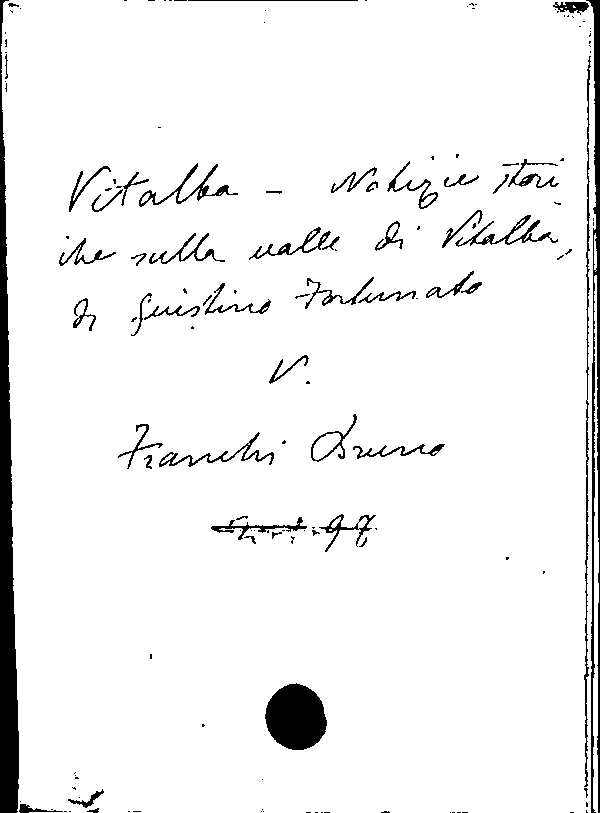 Vitalba - Notizie stori
che sulla valle di Vitalba,
di Giustino Fortunato
V.
Franchi Bruno
97